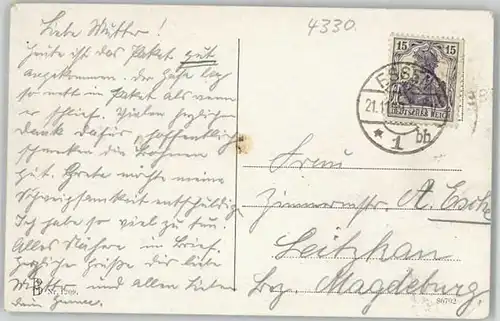 Liebe Mutter!
Heute ist das Paket gut
angekommen. Der Hase lag
so nett im Paket als wenn
er schlief. Vielen herzlichen
Dank dafür, hoffentlich
schmecken die Bohnen
gut. Grete möchte meine
Schreibfaulheit entschuldigen
Ich habe so viel zu tun.
Alles Nähere im Brief.
Herzliche Grüße dir liebe
Mutter und allen Lieben
dein
4330.
15 15
DEUTSCHES REICH
ESSEN
21.11.
* 1 bb
Frau
Zimmermstr. A.
Leitzkau
Bez. Magdeburg.
86792